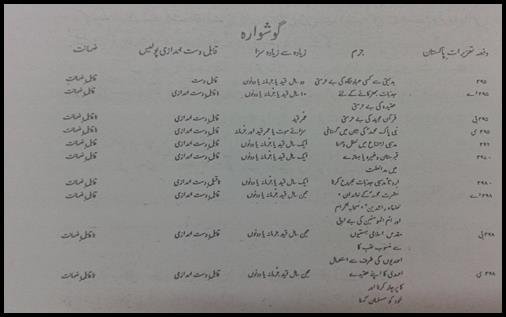 گوشوارہ
دفعہ تعزیرات پاکستان جرم زیادہ سے زیادہ سزا قابل دست اندازی پولیس ضمانت
۲۹۵ بدنیتی سے کسی عبادتگاہ کی بے حرمتی دو سال قید یا جرمانہ یا دونوں قابل دست قابل ضمانت
۲۹۵ اے جذبات بھڑکانے کے لئے ۱۰ سال قید یا جرمانہ یا دونوں دست اندازی قابل ضمانت
عقیدہ کی بے حرمتی
۲۹۵ بی قرآن مجید کی بے حرمتی عمر قید دست اندازی ضمانت
۲۹۵ سی نبی پاک محمد کی شان میں گستاخی سزائے موت یا عمر قید اور جرمانہ دست اندازی ضمانت
۲۹۶ مذہبی اجتماع میں خلل ڈالنا ایک سال قید یا جرمانہ یا دونوں قابل دست اندازی قابل ضمانت
۲۹۷ قبرستان وغیرہ یا جنازے ایک سال قید یا جرمانہ یا دونوں قابل دست اندازی قابل ضمانت
میں مداخلت
۲۹۸ مذہبی جذبات مجروح کرنا ایک سال قید یا جرمانہ یا دونوں دست اندازی قابل ضمانت
۲۹۸ اے حضرت محمد کے خاندان، تین سال قید یا جرمانہ یا دونوں قابل دست اندازی قابل ضمانت
خلفاء راشدین، صحابہ کرام
اور ام المومنین کی بے
۲۹۸ بی مقدس اسلامی ہستیوں تین سال قید یا جرمانہ یا دونوں قابل دست اندازی ضمانت
سے منسوب القاب کا
احمدیوں کی طرف سے استعمال
۲۹۸ سی احمدی کا اپنے عقیدے تین سال قید یا جرمانہ یا دونوں قابل دست اندازی ضمانت
کا پرچار کرنا اور
خود کو مسلمان کہنا